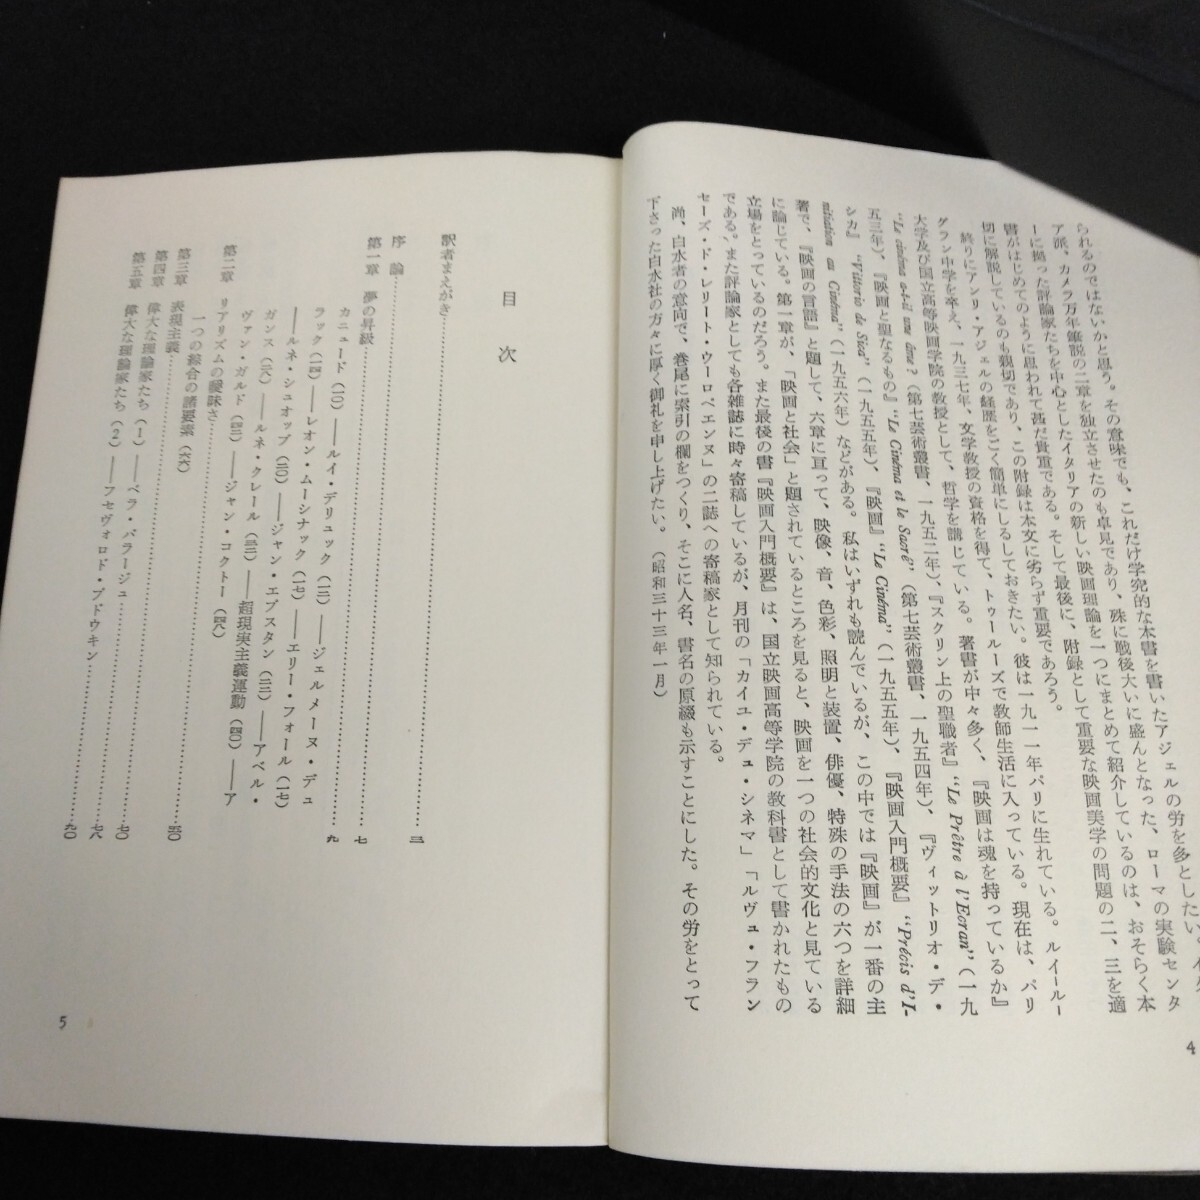 られるのではないかと思う。その意味でも、これだけ学究的な本書を書いたアジェルの労を多としたい。
ア派、カメラ万年筆説の二章を独立させたのも卓見であり、殊に戦後大いに盛んとなった、ローマの実験センタ
ーに拠った評論家たちを中心としたイタリアの新しい映画理論を一つにまとめて紹介しているのは、おそらく本
書がはじめてのように思われて甚だ貴重である。そして最後に、附録として重要な映画美学の問題の二、三を適
切に解説しているのも親切であり、この附録は本文に劣らず重要であろう。
終りにアンリ・アジェルの経歴をごく簡単にしるしておきたい。彼は一九一一年パリに生れている。ルイ＝ル＝
グラン中学を卒え、一九三七年、文学教授の資格を得て、トゥールーズで教師生活に入っている。現在は、パリ
大学及び国立高等映画学院の教授として、哲学を講じている。著書が中々多く、『映画は魂を持っているか』
“Le cinéma a-t-il une âme?”（第七芸術叢書、一九五二年）、『スクリン上の聖職者』“Le Prêtre à l'Ecran”（一九
五三年）、『映画と聖なるもの』“Le Cinéma et le Sacré”（第七芸術叢書、一九五四年）、『ヴィットリオ・デ・
シカ』“Vittorio de Sica”（一九五五年）、『映画』“Le Cinéma”（一九五五年）、『映画入門概要』“Précis d'I-
nitiation au Cinéma”（一九五六年）などがある。私はいずれも読んでいるが、この中では『映画』が一番の主
著で、『映画の言語』と題して、六章に亘って、映像、音、色彩、照明と装置、俳優、特殊の手法の六つを詳細
に論じている。第一章が、「映画と社会」と題されているところを見ると、映画を一つの社会的文化と見ている
立場をとっているのだろう。また最後の書『映画入門概要』は、国立映画高等学院の教科書として書かれたもの
である。また評論家としても各雑誌に時々寄稿しているが、月刊の「カイエ・デュ・シネマ」「ルヴュ・フラン
セーズ・ド・レリート・ウーロペエンヌ」の二誌への寄稿家として知られている。
尚、白水者の意向で、巻尾に索引の欄をつくり、そこに人名、書名の原綴も示すことにした。その労をとって
下さった白水社の方々に厚く御礼を申し上げたい。（昭和三十三年一月）
4
目次
訳者まえがき
序論……三
第一章 夢の昇級……七
カニュード（一〇）――ルイ・デリュック（一二）――ジェルメーヌ・デュ
ラック（一四）――レオン・ムーシナック（一七）――エリー・フォール（一七）
――ルネ・シュオップ（二〇）――ジャン・エプスタン（二二）――アベル・
ガンス（二六）――ルネ・クレール（三二）――超現実主義運動（四〇）――ア
ヴァン・ガルド（四三）――ジャン・コクトー（四八）
第二章 リアリズムの曖昧さ
一つの綜合の諸要素（六六）
第三章 表現主義……五〇
第四章 偉大な理論家たち（1）――ベラ・バラージュ……七〇
第五章 偉大な理論家たち（2）――フセヴォロド・プドウキン……七八
九〇
九
5